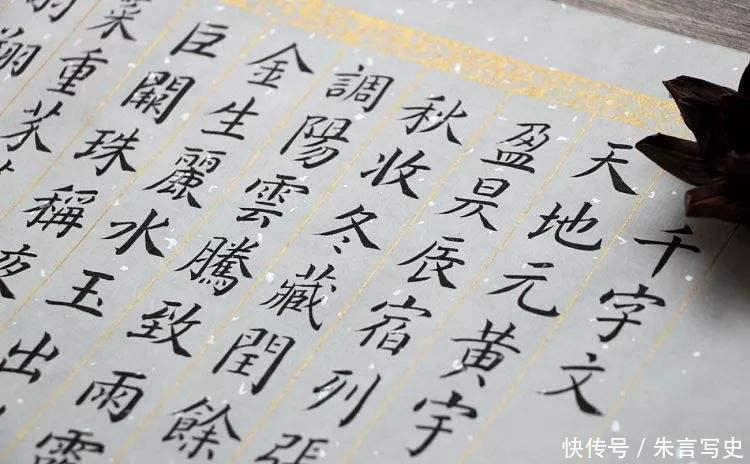 千字文
天地元黄宇
盈昃辰宿列張
秋收冬藏閏餘
調陽雲騰致雨露
金生麗水玉出
巨闕珠稱夜
菜重芥
翔
快传号 / 朱言写史